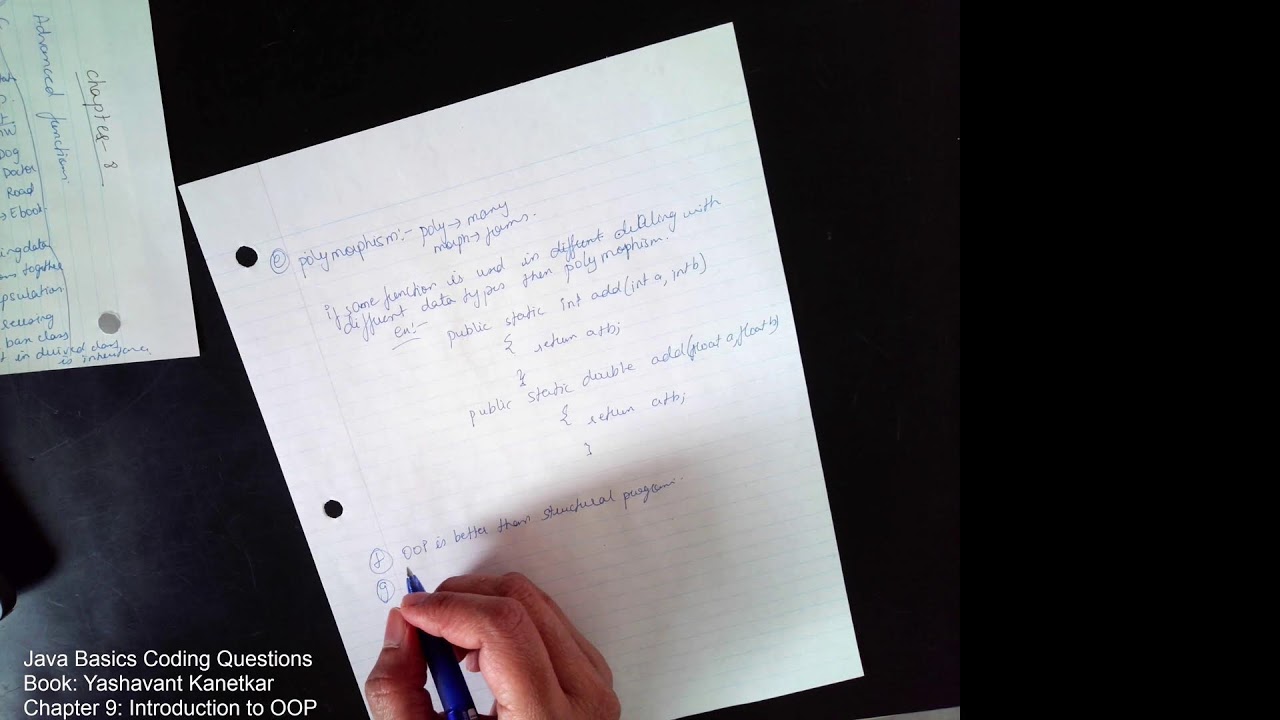 chapter-8
Advanced functions
Dog
Doctor
Road
→ Ebook
ing data
together
psulation
base class
in derived class
is inheritance.
(e) polymorphism:- poly → many
morph → forms.
if same function is used in different dealing with
different data types then polymorphism.
en:- public static int add(int a, int b)
{ return a+b;
}
public static double add(float a, float b)
{ return a+b;
}
(f) OOP is better than structural program.
(g)
Java Basics Coding Questions
Book: Yashavant Kanetkar
Chapter 9: Introduction to OOP